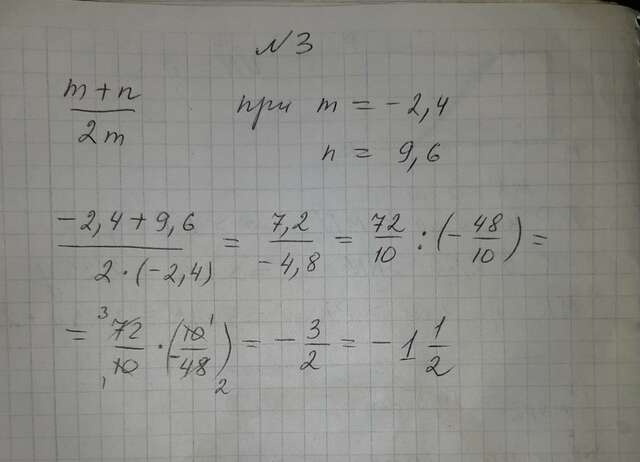 N3
(m+n)/(2m) при m = -2,4
n = 9,6
(-2,4+9,6)/(2·(-2,4)) = 7,2/(-4,8) = 72/10 : (-48/10) =
= ³72/₁10 · (-10¹/48₂) = -3/2 = -1 1/2